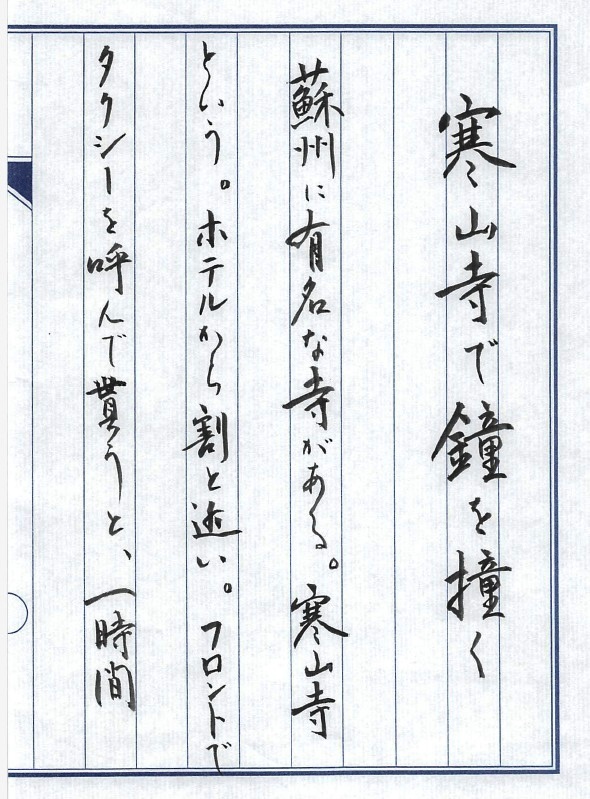 寒山寺で鐘を撞く
蘇州に有名な寺がある。寒山寺
という。ホテルから割と近い。フロントで
タクシーを呼んで貰うと、一時間